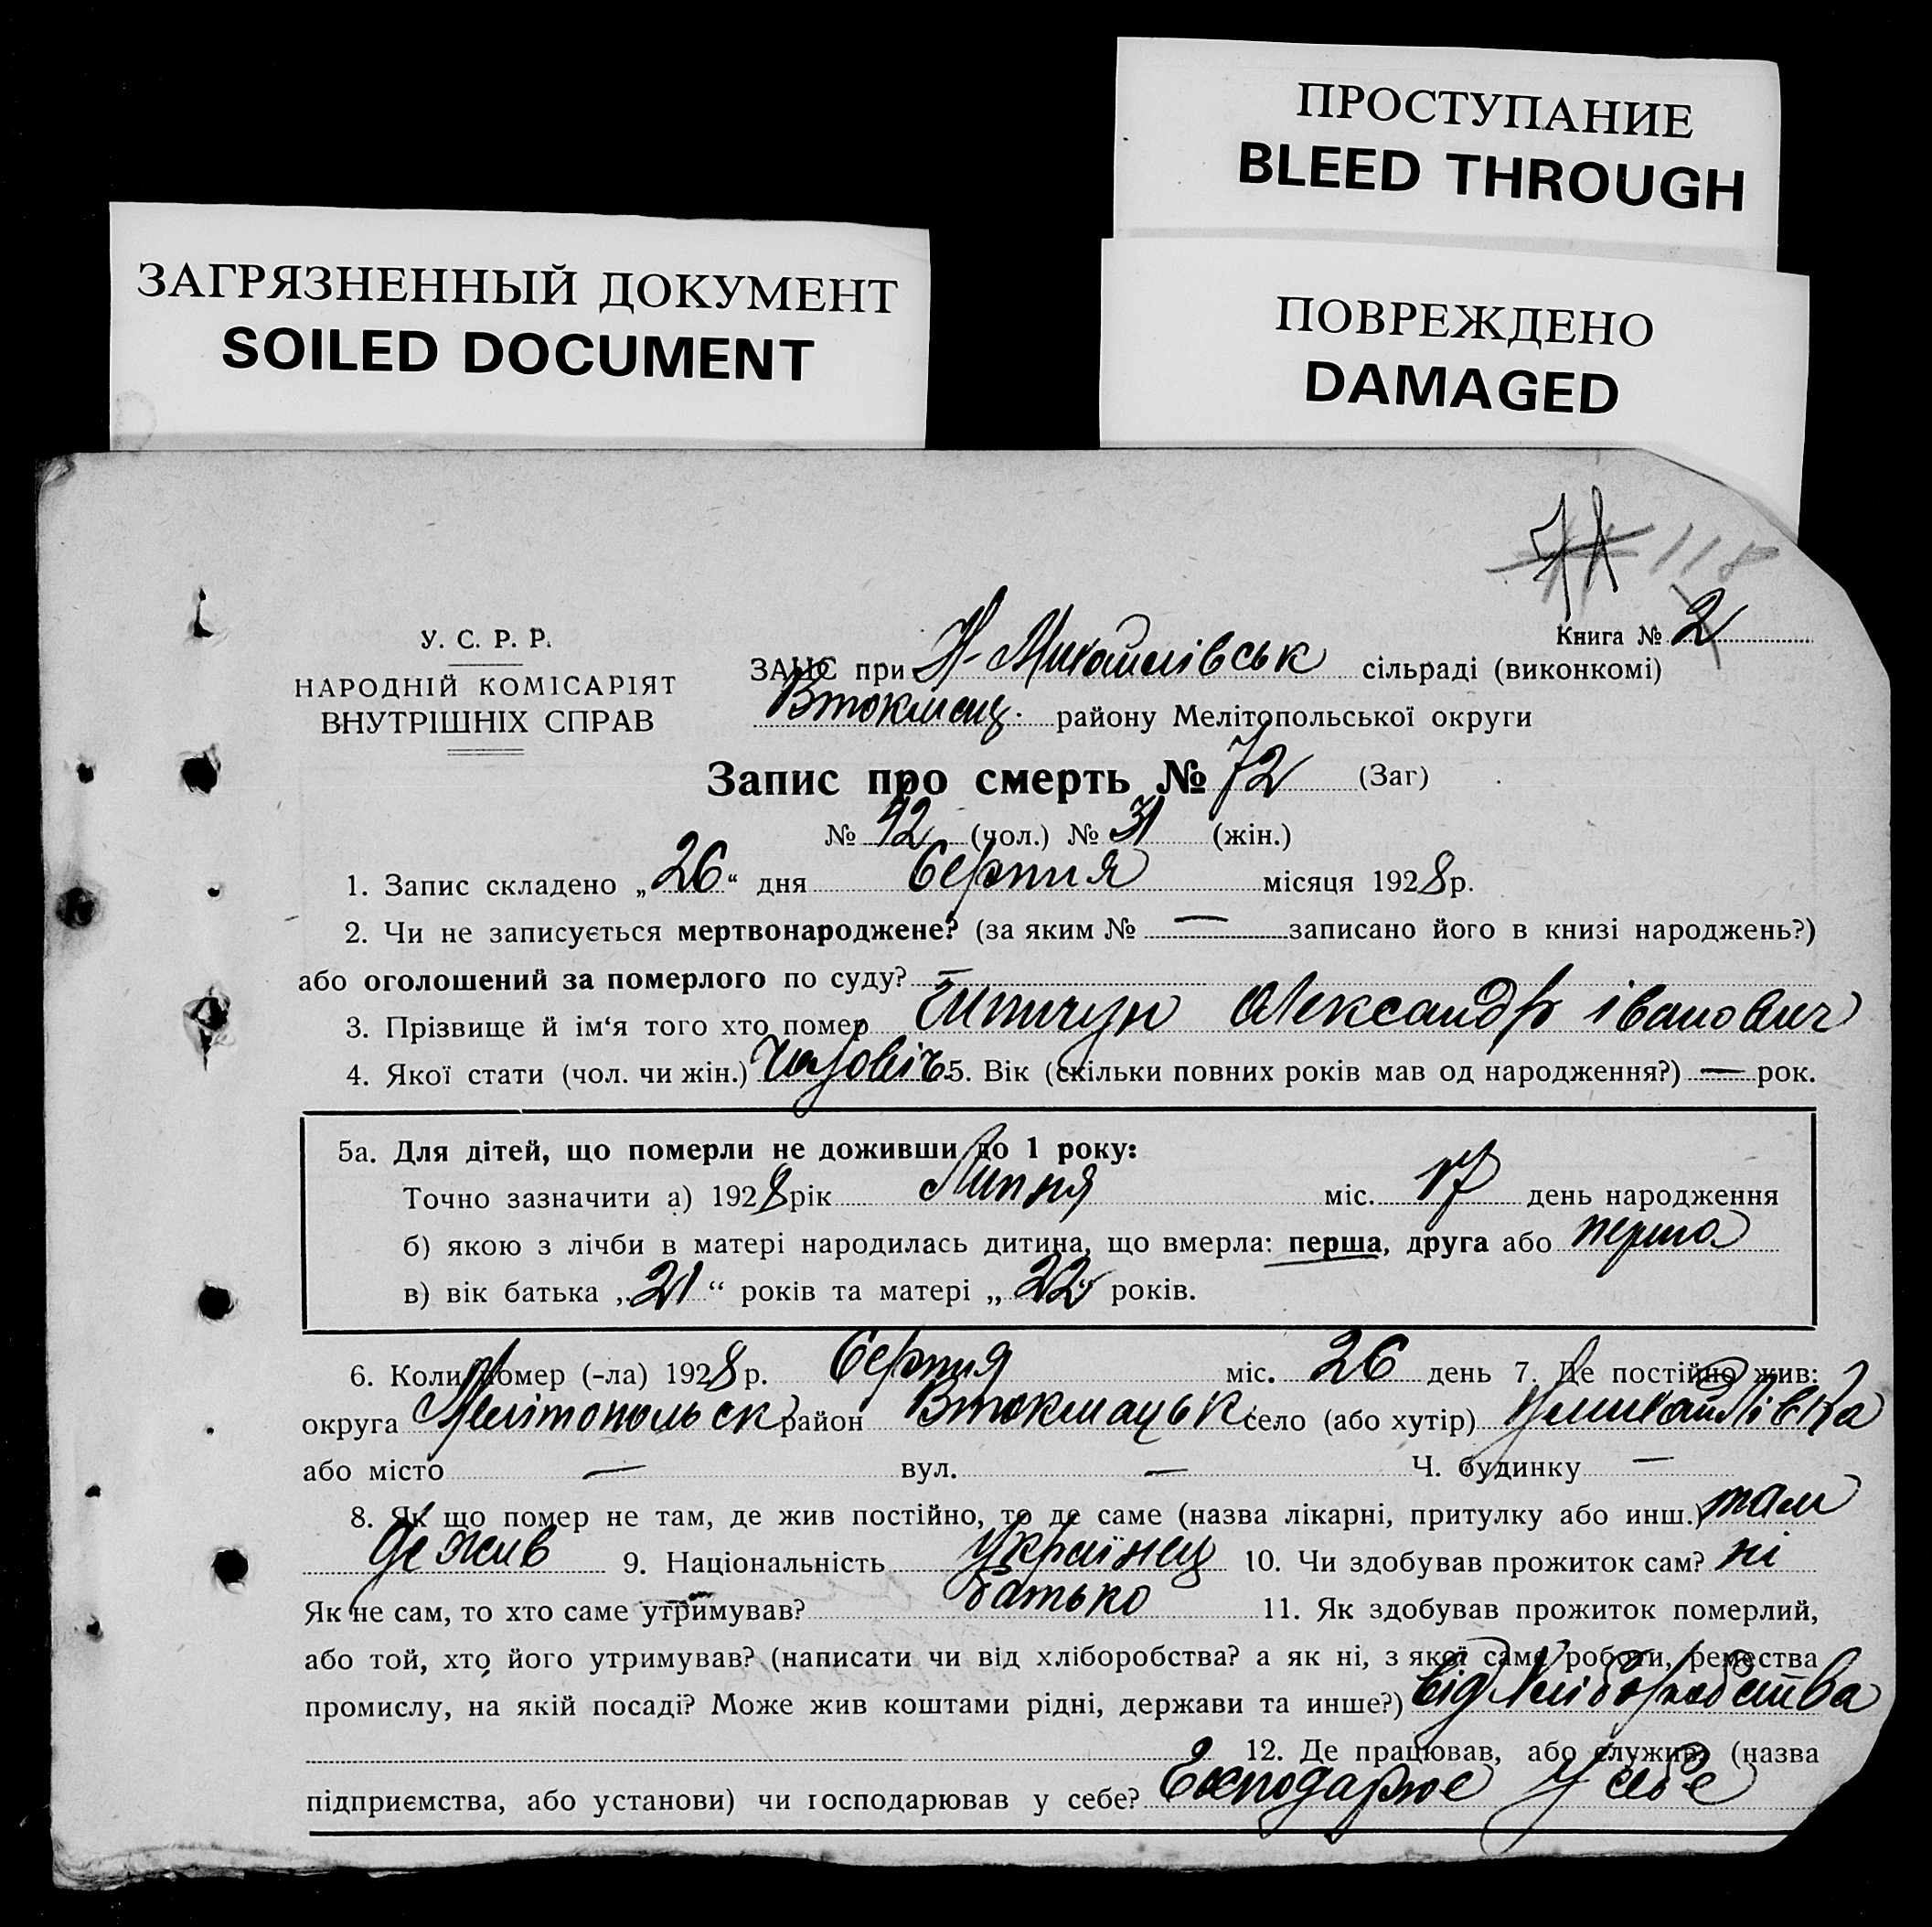 ПРОСТУПАНИЕ
BLEED THROUGH
ЗАГРЯЗНЕННЫЙ ДОКУМЕНТ
SOILED DOCUMENT
ПОВРЕЖДЕНО
DAMAGED
118
У. С. Р. Р.
НАРОДНІЙ КОМІСАРІЯТ
ВНУТРІШНІХ СПРАВ
Книга № 2
ЗАЦС при Н-Михайлівськ сільраді (виконкомі)
Втокмац. району Мелітопольської округи
Запис про смерть № 72 (Заг)
№ 42 (чол.) № 31 (жін.)
1. Запис складено „26“ дня Серпня місяця 1928 р.
2. Чи не записується мертвонароджене? (за яким № — записано його в книзі народжень?)
або оголошений за померлого по суду? —
3. Прізвище й ім‘я того хто помер Олександр Іванович
4. Якої стати (чол. чи жін.) Чоловіч 5. Вік (скільки повних років мав од народження?) — рок.
5а. Для дітей, що померли не доживши до 1 року:
Точно зазначити а) 1928 рік Липня міс. 17 день народження
б) якою з лічби в матері народилась дитина, що вмерла: перша, друга або перша
в) вік батька „21“ років та матері „22“ років.
6. Коли помер (-ла) 1928 р. Серпня міс. 26 день 7. Де постійно жив:
округа Мелітопольськ район Втокмацьк село (або хутір)
або місто — вул. — Ч. будинку —
8. Як що помер не там, де жив постійно, то де саме (назва лікарні, притулку або инш.) там
де жив 9. Національність Українец 10. Чи здобував прожиток сам? ні
Як не сам, то хто саме утримував? батько 11. Як здобував прожиток померлий,
або той, хто його утримував? (написати чи від хліборобства? а як ні, з якої саме роботи, ремества
промислу, на якій посаді? Може жив коштами рідні, держави та инше?) від хліборобства
12. Де працював, або служив (назва
підприємства, або установи) чи господарював у себе? Господарює у себе